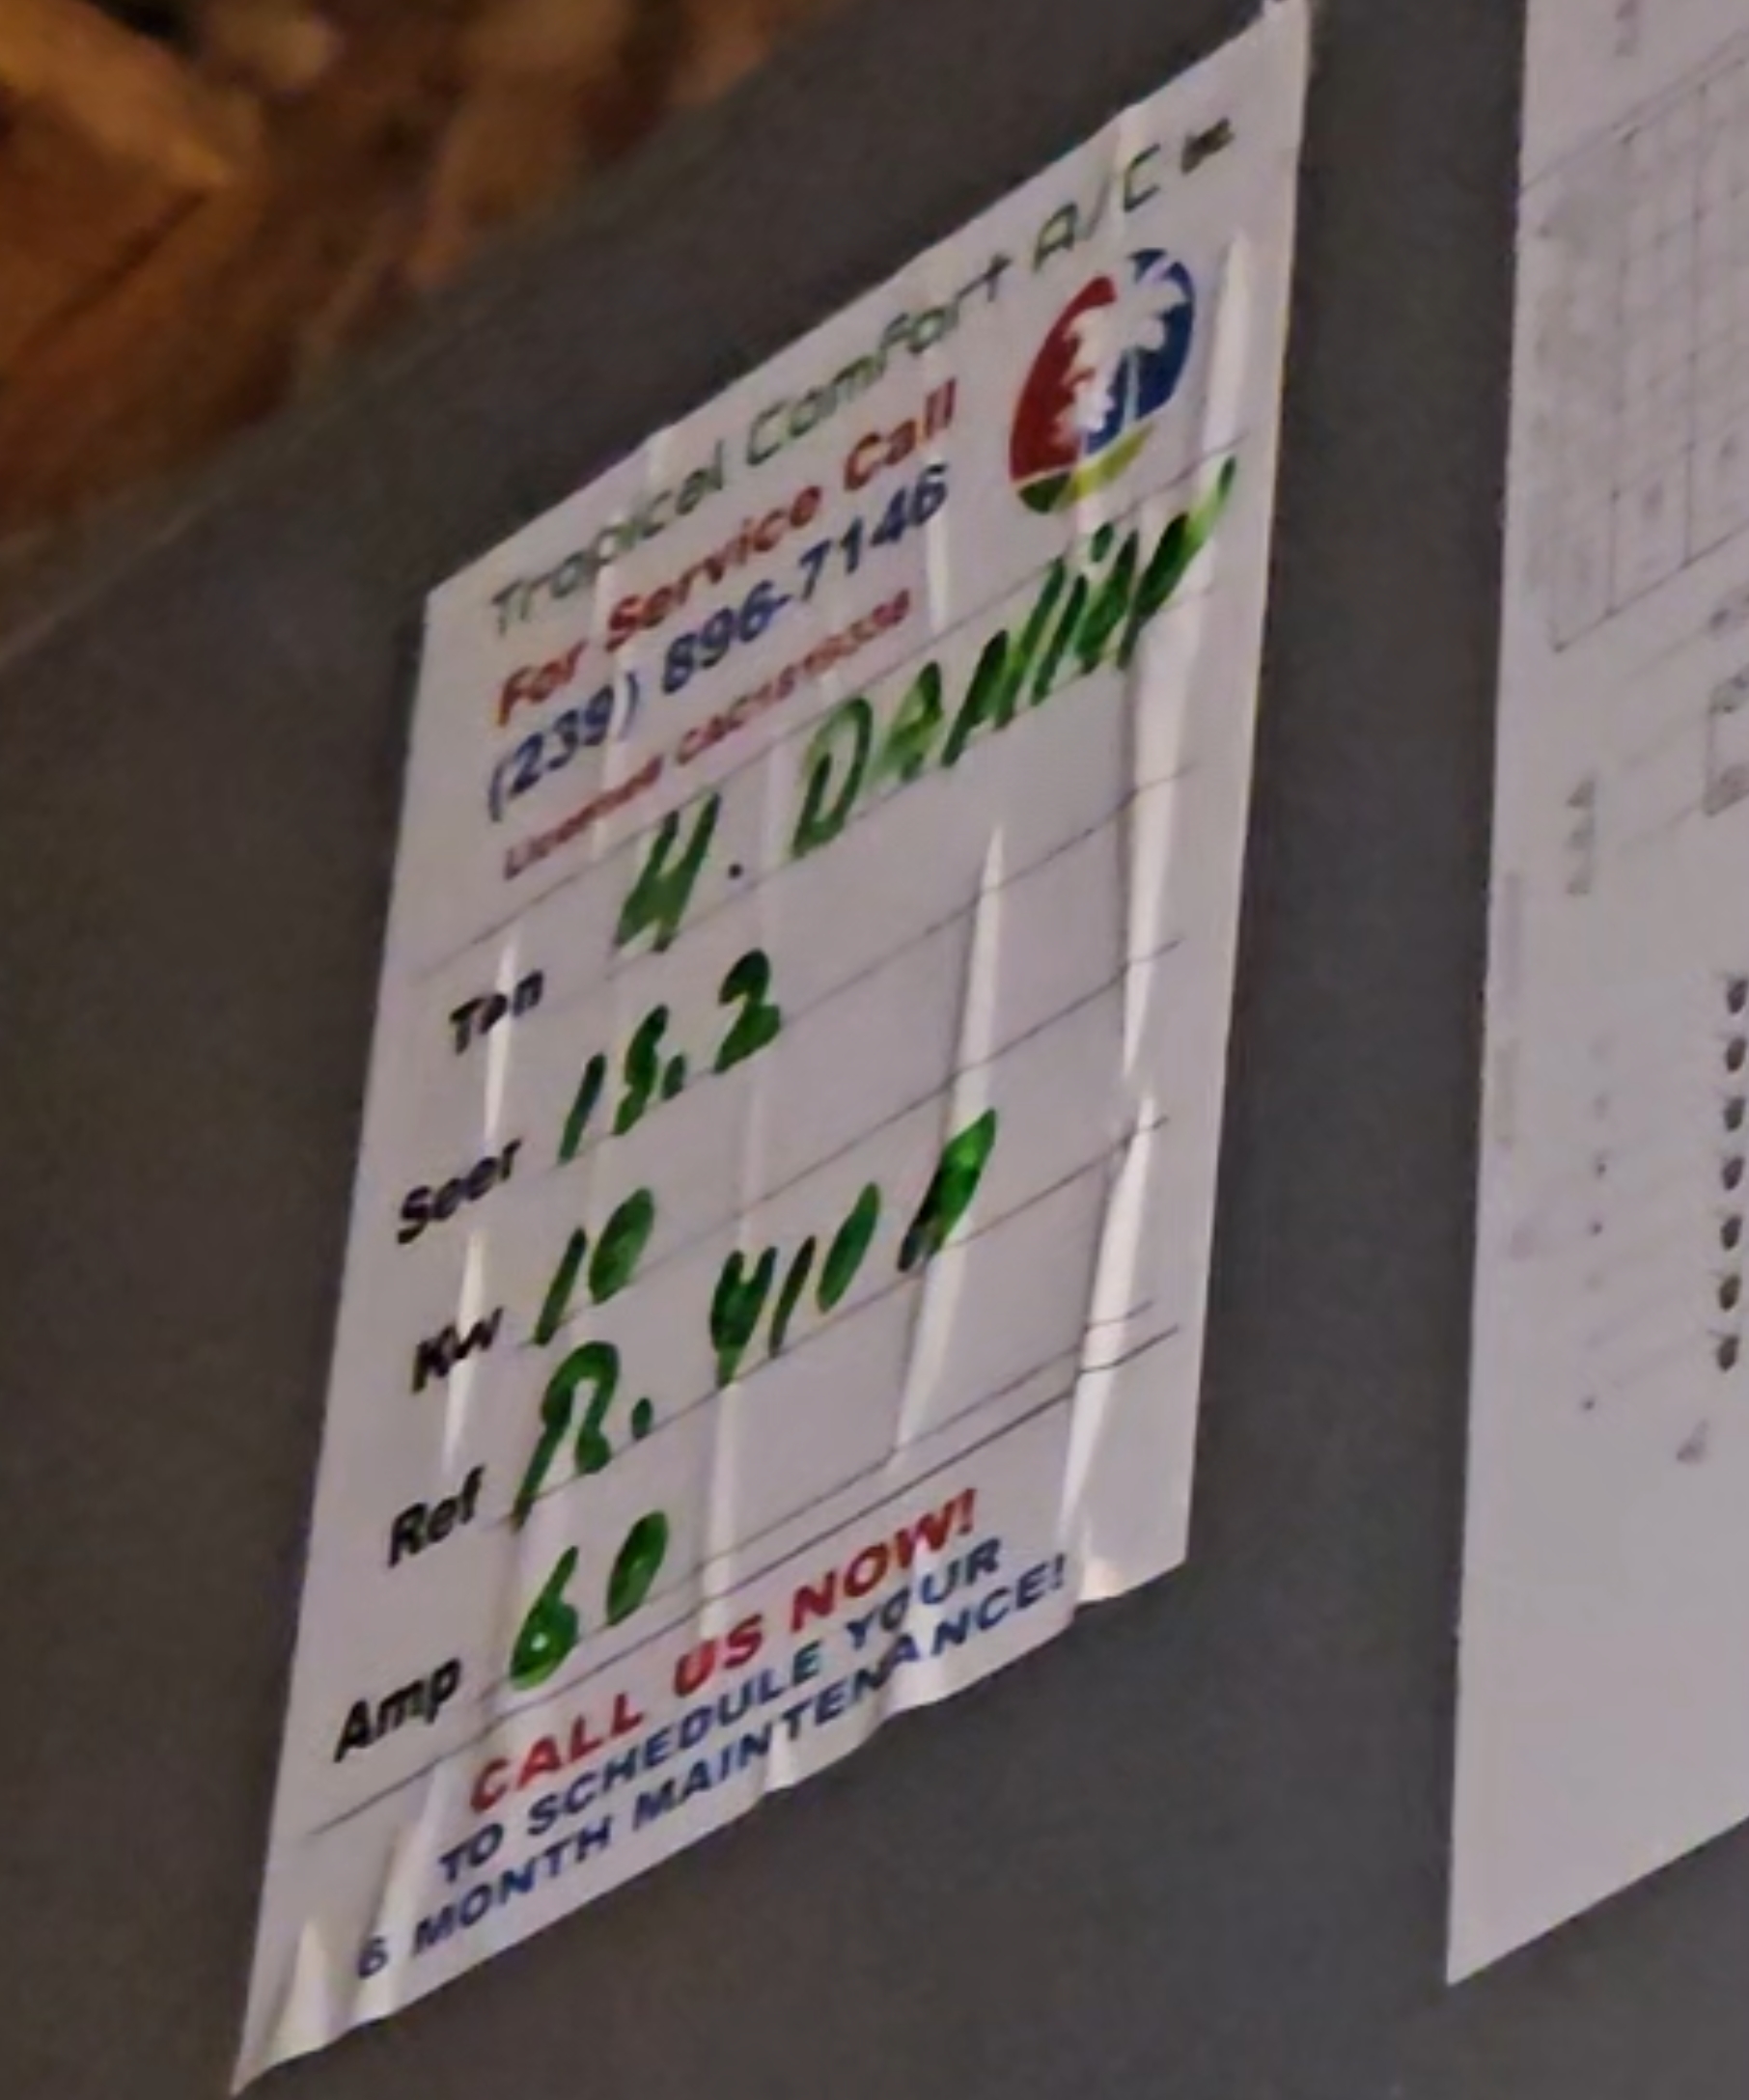 Tropical Comfort A/C Inc
For Service Call
(239) 896-7146
License CAC1819338
Ton 4. DANlin
Seer 15.2
Kw 10
Ref R. 410 A
Amp 60
CALL US NOW!
TO SCHEDULE YOUR
6 MONTH MAINTENANCE!